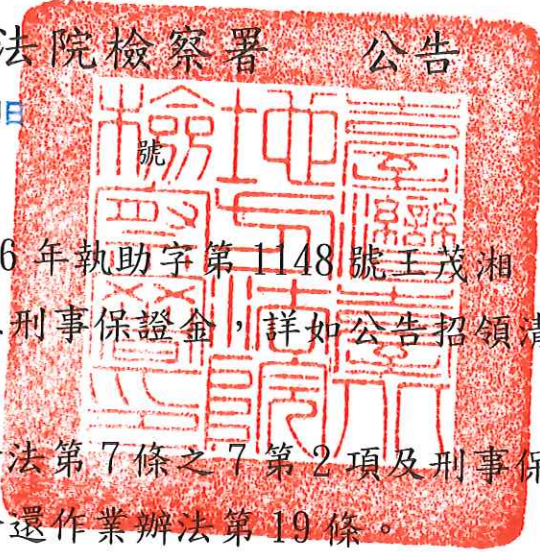 法院檢察署 公告
號
6 年執助字第 1148 號王茂湘
刑事保證金，詳如公告招領清
法第 7 條之 7 第 2 項及刑事保
還作業辦法第 19 條。